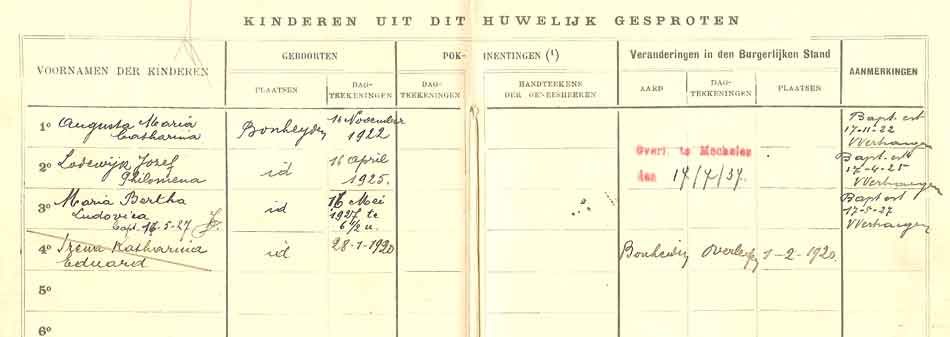 KINDEREN UIT DIT HUWELIJK GESPROTEN
VOORNAMEN DER KINDEREN
GEBOORTEN
PLAATSEN
DAG-
TEEKENINGEN
POK- INENTINGEN (¹)
DAG-
TEEKENINGEN
HANDTEEKENS
DER GENEESHEEREN
Veranderingen in den Burgerlijken Stand
AARD
DAG-
TEEKENINGEN
PLAATSEN
AANMERKINGEN
1º Augusta Maria
Catharina
Bonheyden
16 November
1922
Bapt. est
17-11-22
VVerhaegen
2º Lodewijk Jozef
Philomena
id
16 April
1925.
Overl. te Mechelen
den 17/7/37.
Bapt. est
17-4-25
VVerhaegen
3º Maria Bertha
Ludovica
Bapt. 17-5-27
id
16 Mei
1927 te
6 1/2 u.
Bapt est
17-5-27
VVerhaegen
4º Irena Katharina
Eduard
id
28-1-1920
Bonheiden
Overleden
1-2-1920.
5º
6º